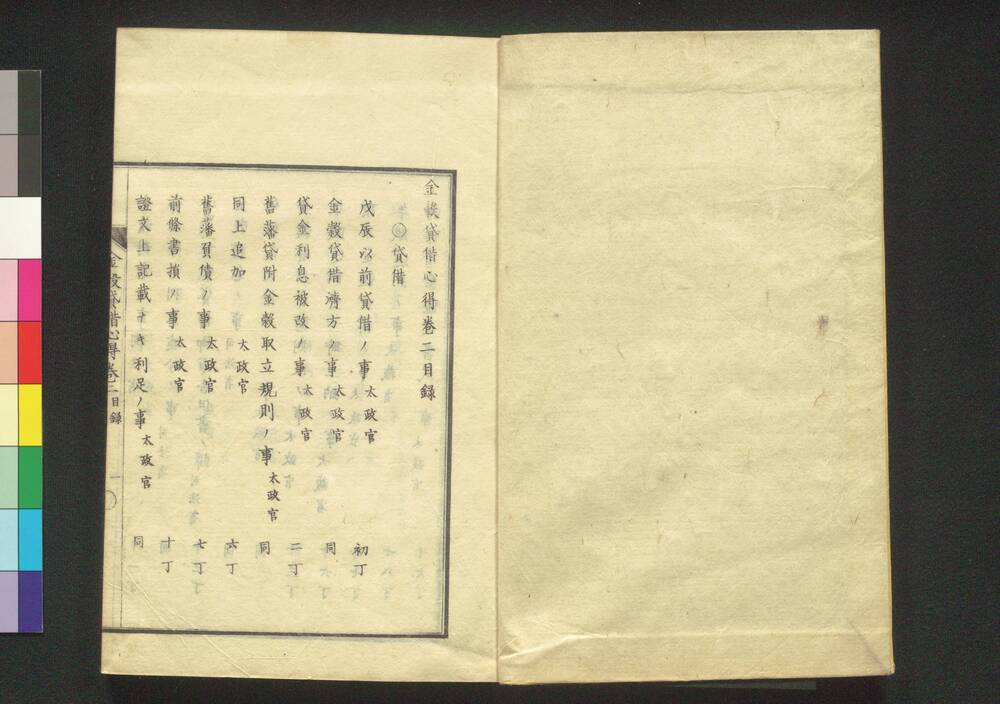 金穀貸借心得卷二目録
貸借
戊辰以前貸借ノ事 太政官 初丁
金穀貸借濟方ノ事 太政官 同
貸金利息被改ノ事 太政官 二丁
舊藩貸附金穀取立規則ノ事 太政官 同
同上追加ノ事 太政官 六丁
舊藩負債ノ事 太政官 七丁
前條書損ノ事 太政官 十丁
證文上記載ナキ利足ノ事 太政官 同
金穀貸借心得卷二目録 一